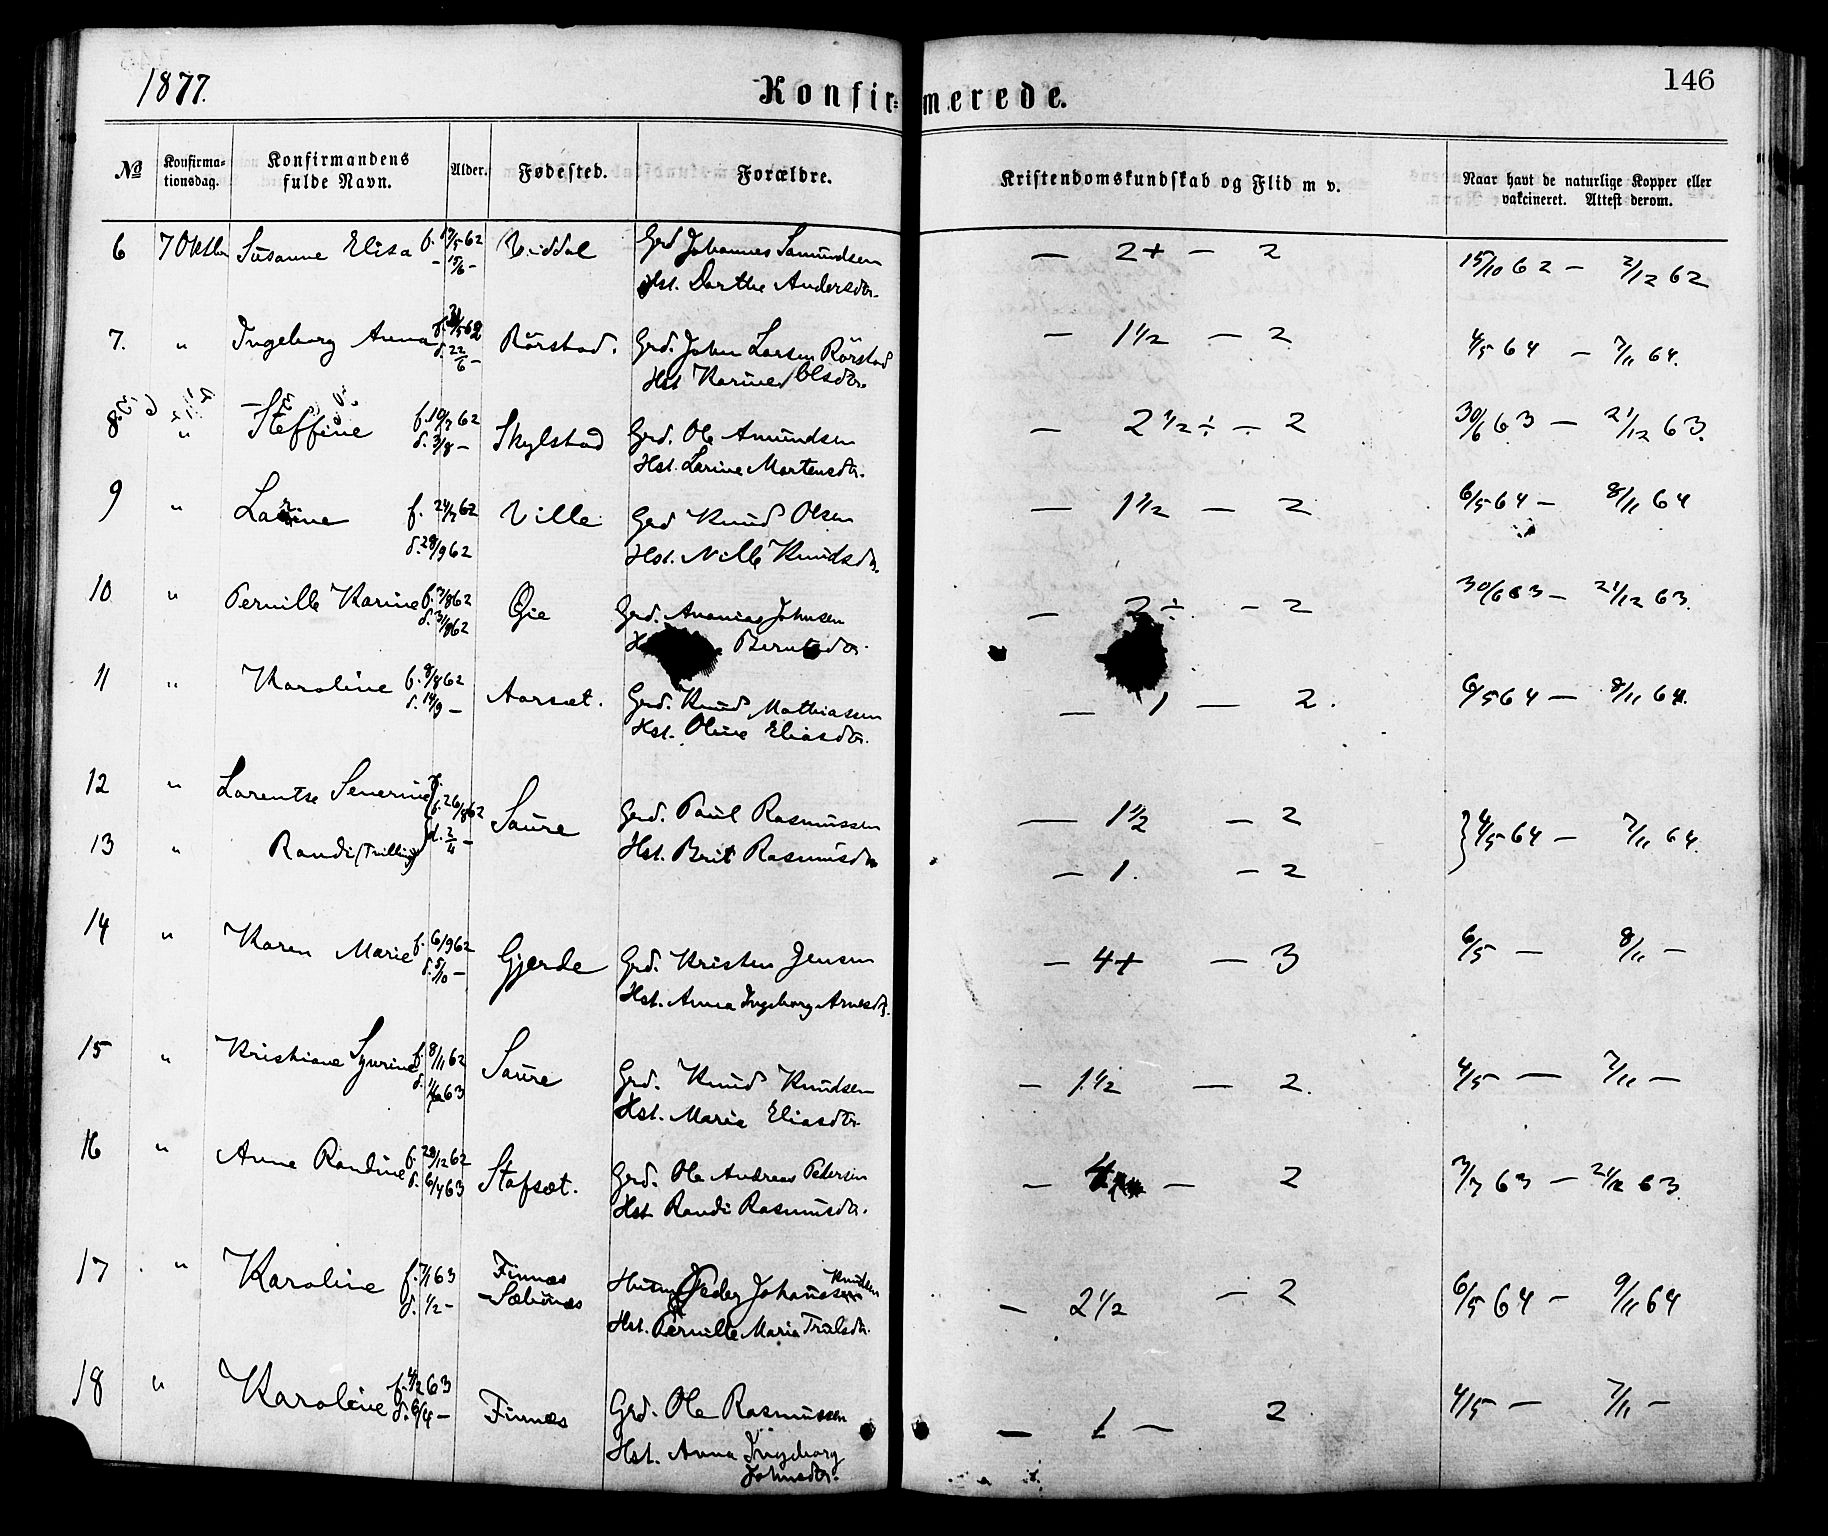 1877.
Konfirmerede.
146
№ Konfirmationsdag. Konfirmandens fulde Navn. Alder. Fødested. Forældre. Kristendomskundskab og Flid m v. Naar havt de naturlige Kopper eller vakcineret. Attest derom.
6 7 Oktbr Susanne Elisa f. 17/5 62 Viddal Grd Johannes Samundsen — 2+ — 2 15/10 62 — 2/12 62
15/6 — Hst. Dorthe Andersdtr.
7. " Ingeborg Anna Rörstad. Grd. John Larsen Rörstad — 1½ — 2 4/5 64 — 7/11 64.
d. 22/6 — Hst Karine Olsdtr.
8. " Steffine f. 10/7 62 Skylstad Grd. Ole Amundsen — 2½ ÷ — 2 30/6 63 — 21/12 63.
d. 3/8 — Hst. Larine Martensdtr.
9 " Larine f. 24/7 62 Ville Grd Knud Olsen — 1½ — 2 6/5 64 — 8/11 64
d. 28/9 62 Hst. Nille Knudsdtr.
10 " Pernille Karine f. 3/8 62 Øie Grd. Ananias Johnsen — 2 ÷ — 2 30/6 63 — 21/12 63.
d. 31/8 62 Berntsdtr.
11 " Karoline f. 8/8 62 Aarsæt. Grd. Knud Mathiassen — 1 — 2. 6/5 64 — 8/11 64.
d. 14/9 — Hst. Oline Eliasdtr.
12 " Larentse Severine f. 26/8 62 Saure Grd. Paul Rasmussen — 1½ — 2 } 4/5 64 — 7/11 64.
13 " Randi (Trilling) d. 2/11 — Hst. Brit Rasmusdtr — 1. — 2
14 " Karen Marie f. 6/9 62 Gjerde Grd. Kristen Jensen — 4+ — 3 6/5 — 8/11 —
d. 5/10 — Hst. Anna Ingeborg Arnesdtr.
15 " Kristiane Syvrine f. 8/11 62 Saure Grd. Knud Knudsen — 1½ — 2. 4/5 — 7/11 —
63 Hst. Marie Eliasdtr.
16 " Anne Randine f. 29/12 62 Stafsæt. Grd. Ole Andreas Petersen — 4 — 2 3/7 63 — 21/12 63.
d. 6/4 63 Hst. Randi Rasmusdtr.
17. " Karoline f. 7/1 63 Finnæs Peder Johansen Knudsen — 2½ — 2 6/5 64 — 9/11 64
d. 1/2 — Sæbönæs Hst. Pernille Marie
18 " Karoline f. 4/2 63 Finnæs Grd. Ole Rasmussen — 1 — 2 4/5 — 7/11 —
d. 6/4 — Hst. Anna Ingeborg
Johnsdtr.